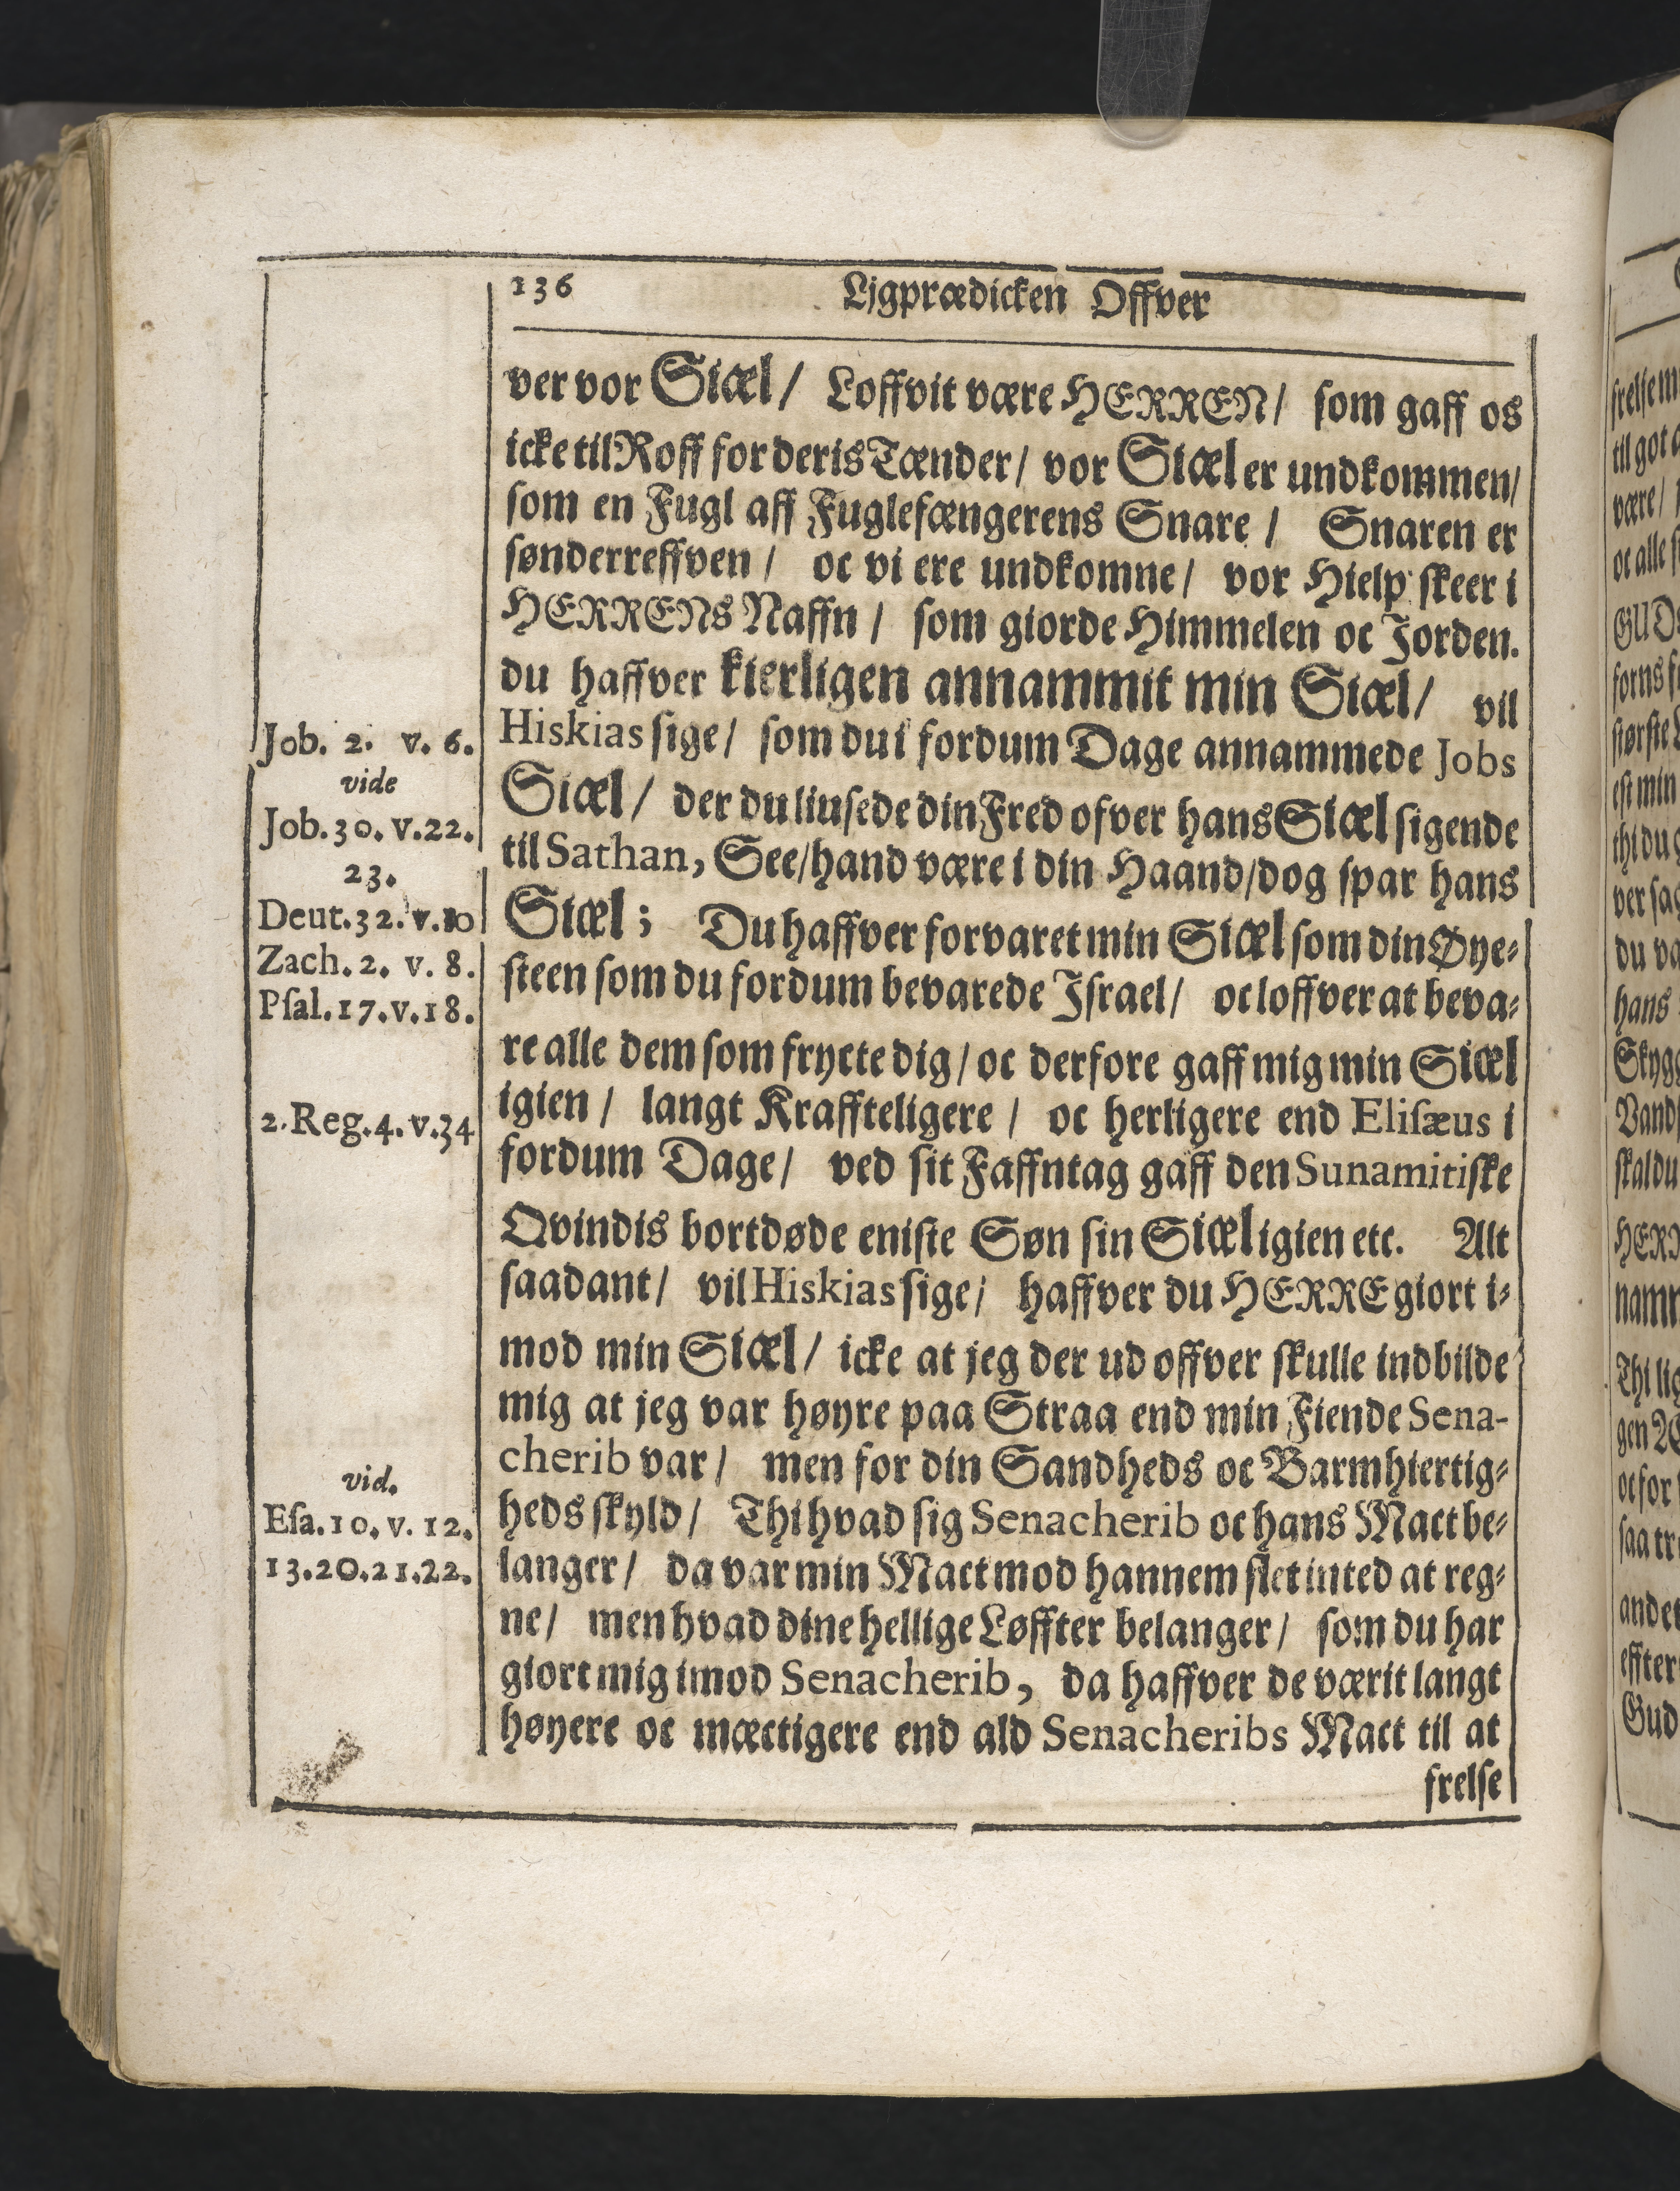 136 Ljgprædicken Offver
ver vor Siæl / Loffvit være HERREN / som gaff os
icke til Roff for deris Tænder / vor Siæl er undkommen /
som en Fugl aff Fuglefængerens Snare / Snaren er
sønderreffven / oc vi ere undkomne / vor Hielp skeer i
HERRENs Naffn / som giorde Himmelen oc Jorden.
du haffver kierligen annammit min Siæl / vil
Hiskias sige / som du i fordum Dage annammede Jobs
Siæl / der du liusede din Fred ofver hans Siæl sigende
til Sathan, See / hand være i din Haand / dog spar hans
Siæl ; Du haffver forvaret min Siæl som din Øye-
steen som du fordum bevarede Israel / oc loffver at beva-
re alle dem som frycte dig / oc derfore gaff mig min Siæl
igien / langt Kraffteligere / oc herligere end Elisæus i
fordum Dage / ved sit Faffntag gaff den Sunamitiske
Qvindis bortdøde eniste Søn sin Siæl igien etc. Alt
saadant / vil Hiskias sige / haffver du HERRE giort i-
mod min Siæl / icke at jeg der ud offver skulle indbilde
mig at jeg var høyre paa Straa end min Fiende Sena-
cherib var / men for din Sandheds oc Barmhiertig-
heds skyld / Thi hvad sig Senacherib oc hans Mact be-
langer / da var min Mact mod hannem slet inted at reg-
ne / men hvad dine hellige Løffter belanger / som du har
giort mig imod Senacherib, da haffver de værit langt
høyere oc mæctigere end ald Senacheribs Mact til at
frelse
Job. 2. v. 6.
vide
Job. 30. v. 22.
23.
Deut. 32. v. 10
Zach. 2. v. 8.
Psal. 17. v. 18.
2. Reg. 4. v. 34
vid.
Esa. 10. v. 12.
13. 20. 21. 22.